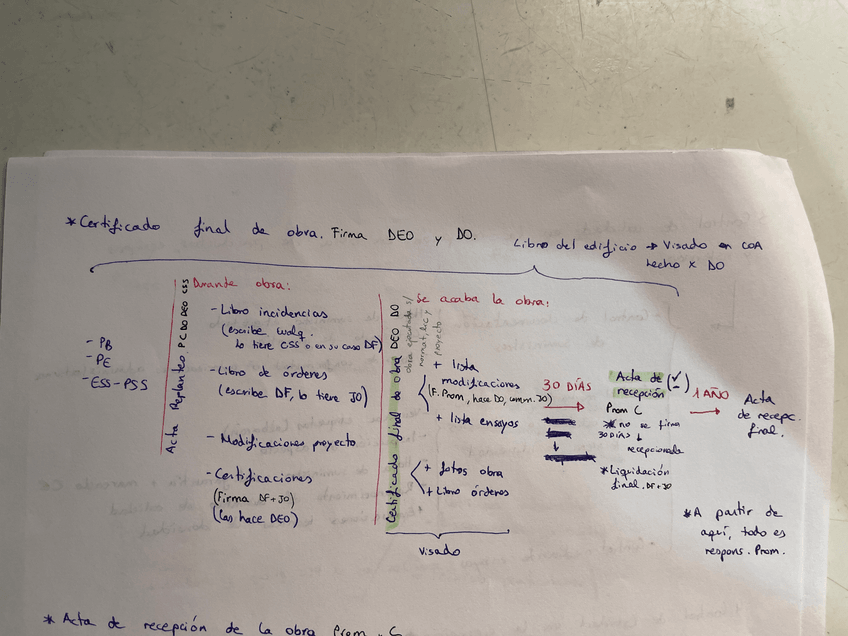 * Certificado final de obra. Firma DEO y DO.
Libro del edificio → Visado en COA
hecho x DO
- PB
- PE
- ESS - PSS
Acta Replanteo. P C DO DEO CSS
Durante obra:
- Libro incidencias
(escribe
lo tiene CSS o en su caso DF)
- Libro de órdenes
(escribe DF, lo tiene JO)
- Modificaciones proyecto
- Certificaciones
(Firma DF + JO)
(las hace DEO)
Certificado final de obra DEO DO
obra ejecutada s/
normat, lic y
proyecto
Se acaba la obra:
+ lista
modificaciones
(F. Prom, hace DO, comm. JO)
+ lista ensayos
+ fotos obra
+ Libro órdenes
Visado
30 DÍAS
Acta de
recepción
(✓ -)
Prom C
* no se firma
30 DÍAS ↓
recepcionada
* Liquidación
final. DF + JO
1 AÑO
Acta
de recepc.
final.
* A partir de
aquí, todo es
respons. Prom.
* Acta de recepción de la obra Prom y C